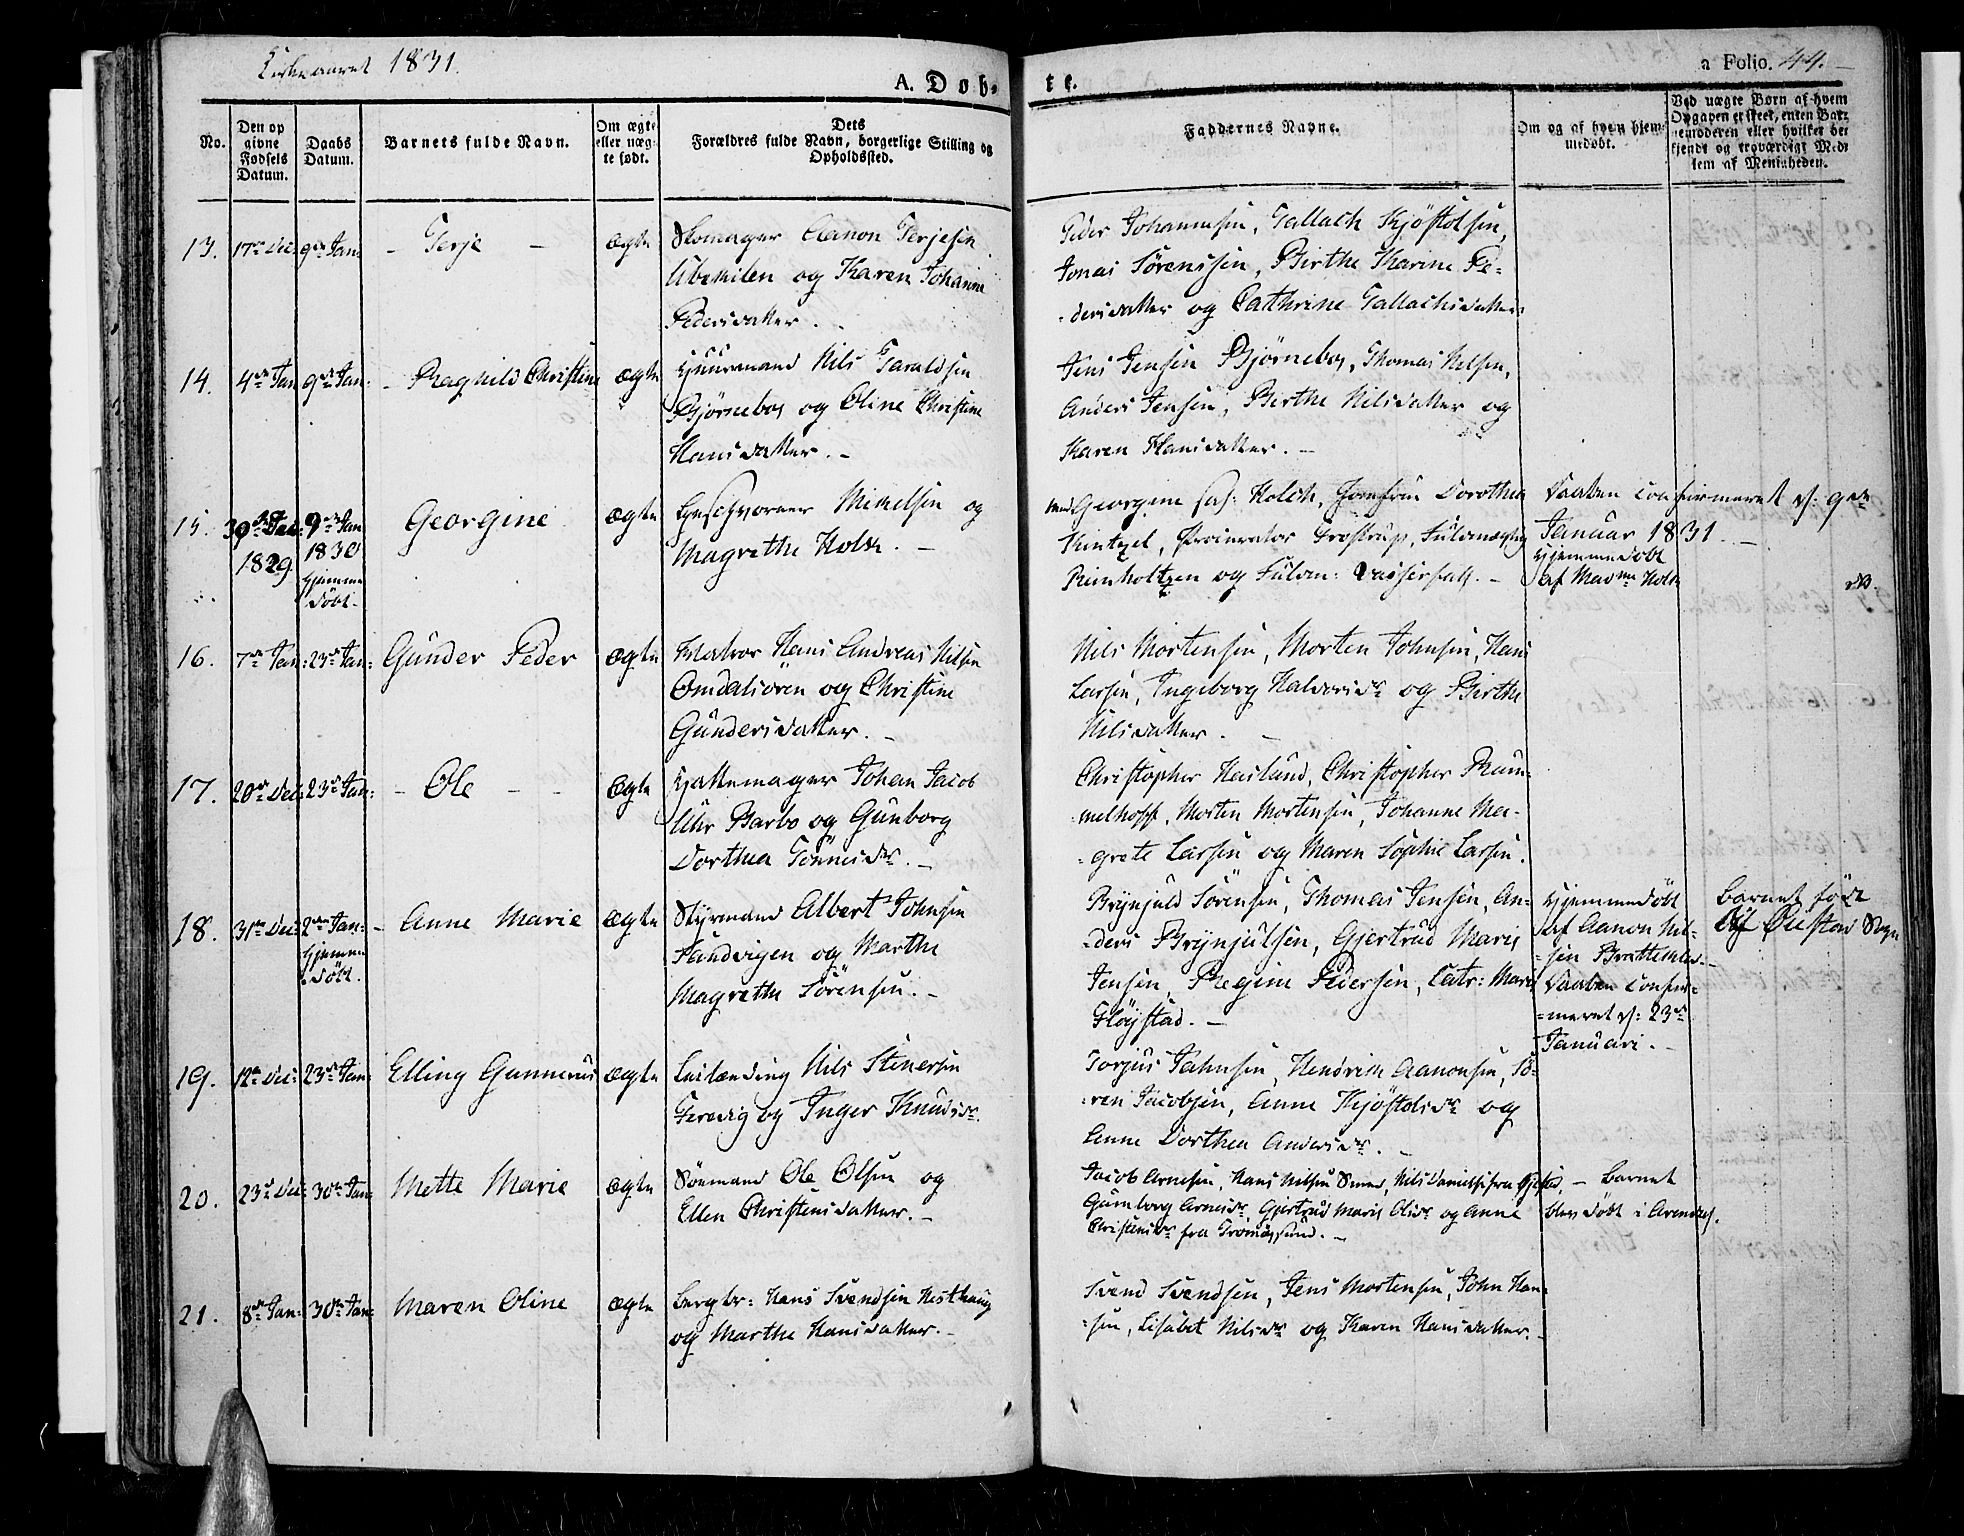 Kirkeaaret 1831.
A. Døb-
te.
a Folio. 44.
No.
Den op
givne
Fødsels
Datum.
Daabs
Datum.
Barnets fulde Navn.
Om ægte
eller uæg-
te født.
Dets
Forældres fulde Navn, borgerlige Stilling og
Opholdssted.
Faddernes Navne.
Om og af hvem hjem-
medøbt.
Ved uægte Børn af hvem
Opgaven er skeet, enten Bar-
nemoderen eller hvilket be-
kjendt og troværdigt Med-
lem af Menigheden.
13. 17de Dec: 9de Jan: - Terje - ægte
Skomager Aanon Terjesen
Ubekilen og Karen Johanne
Pedersdatter.
Peder Johannesen, Tallach Kjøstolsen,
Jonas Sørenssen, Birthe Karine Pe-
-dersdatter og Cathrine Tallachsdatter
14. 4de Jan 9de Jan: - Ragnild Christine ægte
Huusmand Nils Taraldsen
Bjørnebos og Oline Christine
Hansdatter. -
Jens Jensen Bjørnebos, Thomas Nilsen,
Anders Jensen, Birthe Nilsdatter og
Karen Hansdatter. -
15. 1829. 9de Jan
1830
hjemme
døbt. Georgine ægte
Geschworner Mickelsen og
Magrethe Holck. -
Georgine Holch, Jomfru Dorothea
Kintzel, Procurator Trostrup, Fuldmægtig
Reinholtzen og Fuldm: Vasserfall. -
Daaben confirmeret d: 9de
Januar 1831. -
Hjemmedøbt
af Holck
16. 7de Jan: 23de Jan: Gunder Peder ægte
Matros Hans Andreas Nilsen
Omdalsøren og Christine
Gundersdatter. -
Nils Mortensen, Morten Johnsen, Hans
Larsen, Ingeborg Halvorsdr og Birthe
Nilsdatter. -
17. 20de Dec: 23de Jan: - Ole - - ægte
Hattemager Johan Jacob
Uhr Barbo og Gunborg
Dorthea Tønnesdr. -
Christopher Haslund, Christopher Rum-
-melhoff, Morten Mortensen, Johanne Ma-
-grete Larsen og Maren Sophie Larsen.
18. 31te Dec: 2den Jan:
hjemme
døbt. - Anne Marie ægte
Styrmand Albert Johnsen
Sandvigen og Marthe
Magrethe Sørensen. -
Brynjuld Sørensen, Thomas Jensen, An-
-ders Brynjulsen, Gjertrud Marie
Jensen, Regine Pedersen, Catr: Marie
Fløystad. -
Hjemmedøbt
af Aanon Nil-
-sen Bratteklev -
Daaben confir-
-meret d: 23de
Januari. -
Barnet født
i Øiestad Sogn
19. 12te Dec: 23de Jan: Elling Gunnerius ægte
Leilænding Nils Stenersen
Gjervig og Inger Knudsdr.
Torjus Jahnsen, Hendrich Aanonsen, Sø-
-ren Jacobsen, Anne Kjøstolsdr og
Anne Dorthea Andersdr. -
20. 23de Dec: 30te Jan: Mette Marie ægte
Sømand Ole Olsen og
Ellen Christensdatter. -
Jacob Arnesen, Hans Nilsen Smed, Nils Danielsen fra
Gunborg Arnesdr, Gjertrud Marie Olsdr og Anne
Christensdr fra Tromøesund. -
- Barnet
blev døbt i Arendal.
21. 8de Jan: 30te Jan: Maren Oline ægte
Bergbr: Hans Svendsen Nesthaug
og Marthe Hansdatter. -
Svend Svendsen, Jens Mortensen, John Han-
-sen, Lisabet Nilsdr og Karen Hansdatter. -